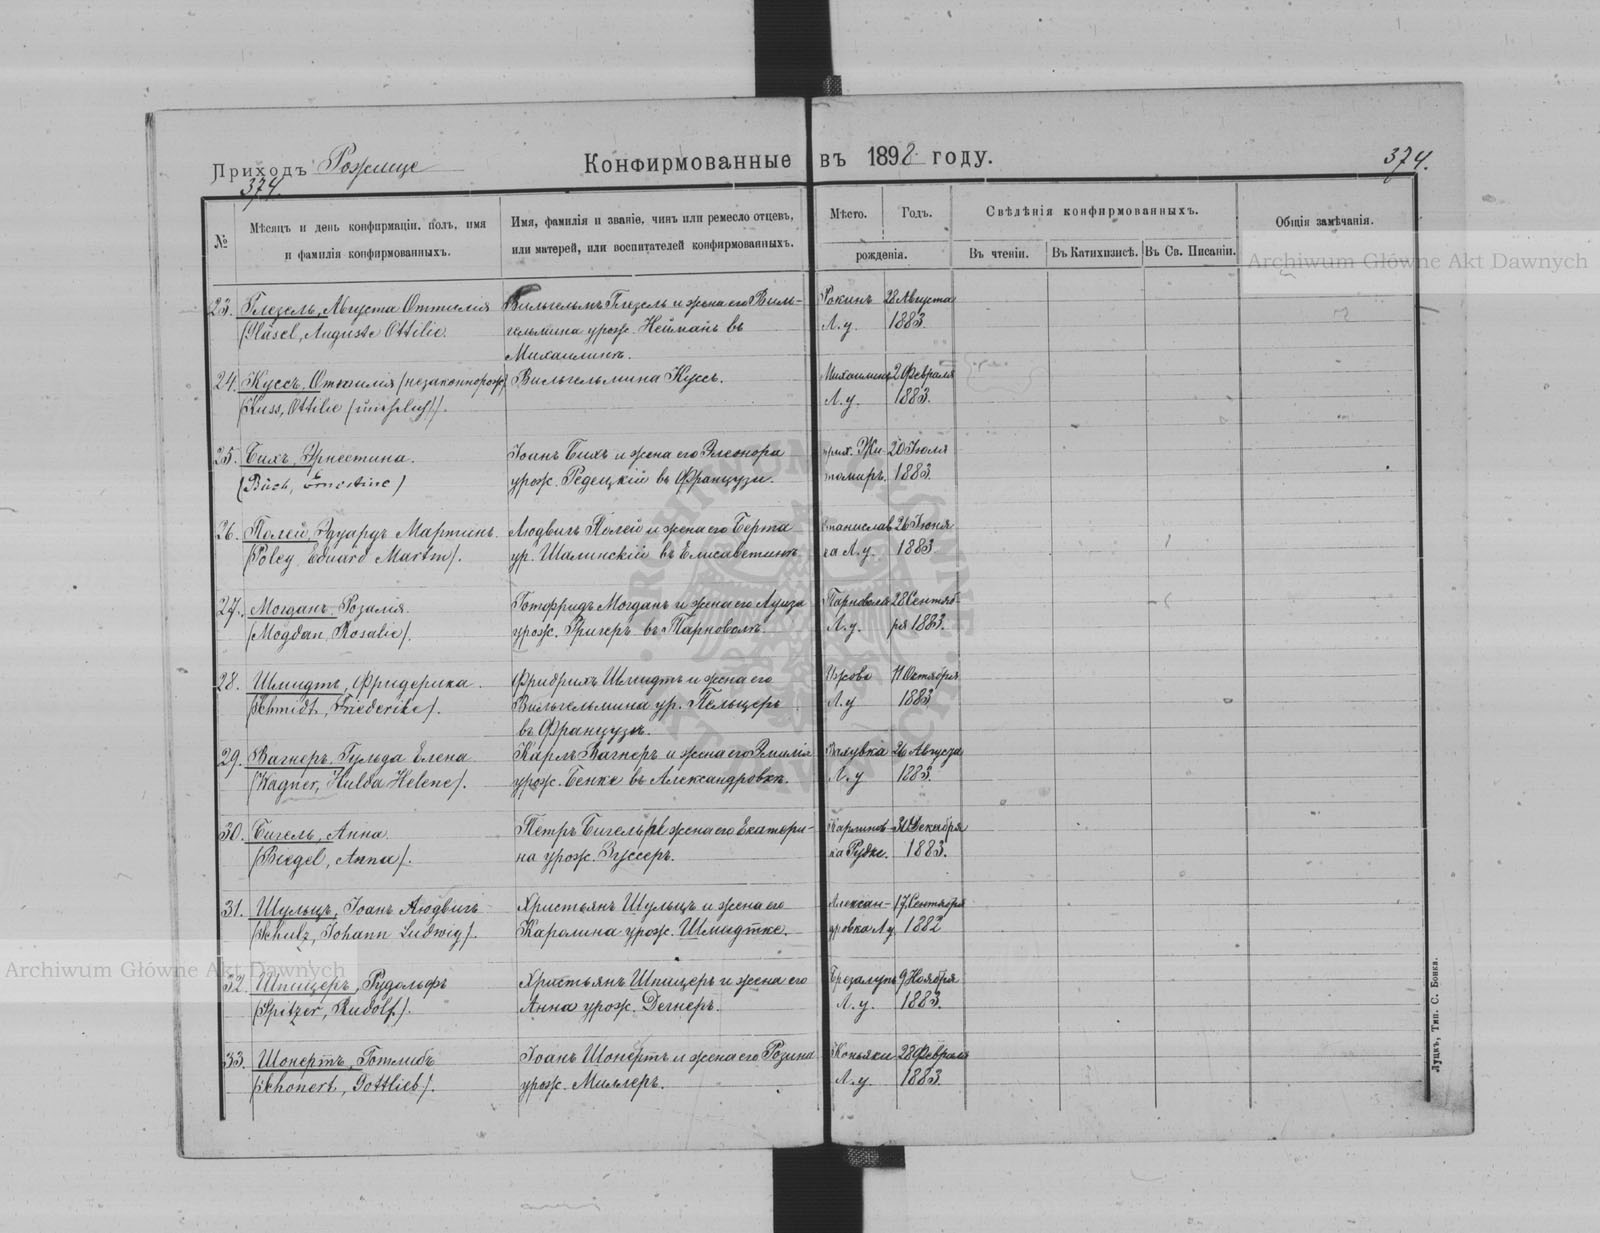 Приходъ Рожище
Конфирмованные въ 1898 году.
374.
374.
№
Мѣсяцъ и день конфирмаціи, полъ, имя
и фамилія конфирмованныхъ.
Имя, фамилія и званіе, чинъ или ремесло отцевъ,
или матерей, или воспитателей конфирмованныхъ.
Мѣсто.
Годъ.
рожденія.
Свѣдѣнія конфирмованныхъ.
Въ чтеніи.
Въ Катихизисѣ.
Въ Св. Писаніи.
Общія замѣчанія.
Archiwum Główne Akt Dawnych
23. Глезель, Августа Оттилія Вильгельмъ Глезель и жена его Виль- Рокинъ 28 Августа
(Gläsel, Auguste Ottilie. гельмина урож. Нейманъ въ Л.у. 1883.
Михаилинѣ.
24. Куссъ, Оттилія (незаконнорож) Вильгельмина Куссъ. Михаилинъ 2 Февраля
(Kuss, Ottilie (unehelich)). Л.у. 1883.
25. Бихъ, Эрнестина. Іоанъ Бихъ и жена его Элеонора прих. Жи- 20 Іюля
(Büch, Ernestine) урож. Редецкій въ Французи. томиръ. 1883.
26. Полей, Эдуардъ Мартинъ. Людвигъ Полей и жена его Берта Станислав 26 Іюня
(Poley, Eduard Martin). ур. Шалинскій въ Елисаветинѣ ка Л.у. 1883.
27. Могданъ, Розалія. Готфридъ Могданъ и жена его Луиза Тарноволя 28 Сентяб-
(Mogdan, Rosalie). урож. Григеръ въ Тарноволѣ. Л.у. ря 1883.
28. Шмидтъ, Фридерика. Фридрихъ Шмидтъ и жена его Ужово 11 Октября
(Schmidt, Friederike). Вильгельмина ур. Пельцеръ Л.у 1883
въ Французи.
29. Вагнеръ, Гульда Елена Карлъ Вагнеръ и жена его Эмилія 26 Августа
(Wagner, Hulda Helene). урож. Бенке въ Александровкѣ. Л.у 1883.
30. Бигель, Анна Петръ Бигель и жена его Екатери- Карлинов- 31 Декабря
(Biegel, Anna). на урож. Зуссеръ. ка Рудке. 1883.
31. Шульцъ, Іоанъ Людвигъ Христьянъ Шульцъ и жена его Алексан- 17 Сентября
(Schulz, Johann Ludwig). Каролина урож. Шмидтке. дровка Л.у 1882
Archiwum Główne Akt Dawnych
32. Шпицеръ, Рудольфъ Христьянъ Шпицеръ и жена его 9 Ноября
(Spitzer, Rudolf). Анна урож. Дегнеръ. Л.у. 1883.
33. Шонертъ, Готлибъ Іоанъ Шонертъ и жена его Розина Коньяки 28 Февраля
(Schonert, Gottlieb). урож. Миллеръ. Л.у. 1883.
Луцкъ, Тип. С. Бонка.